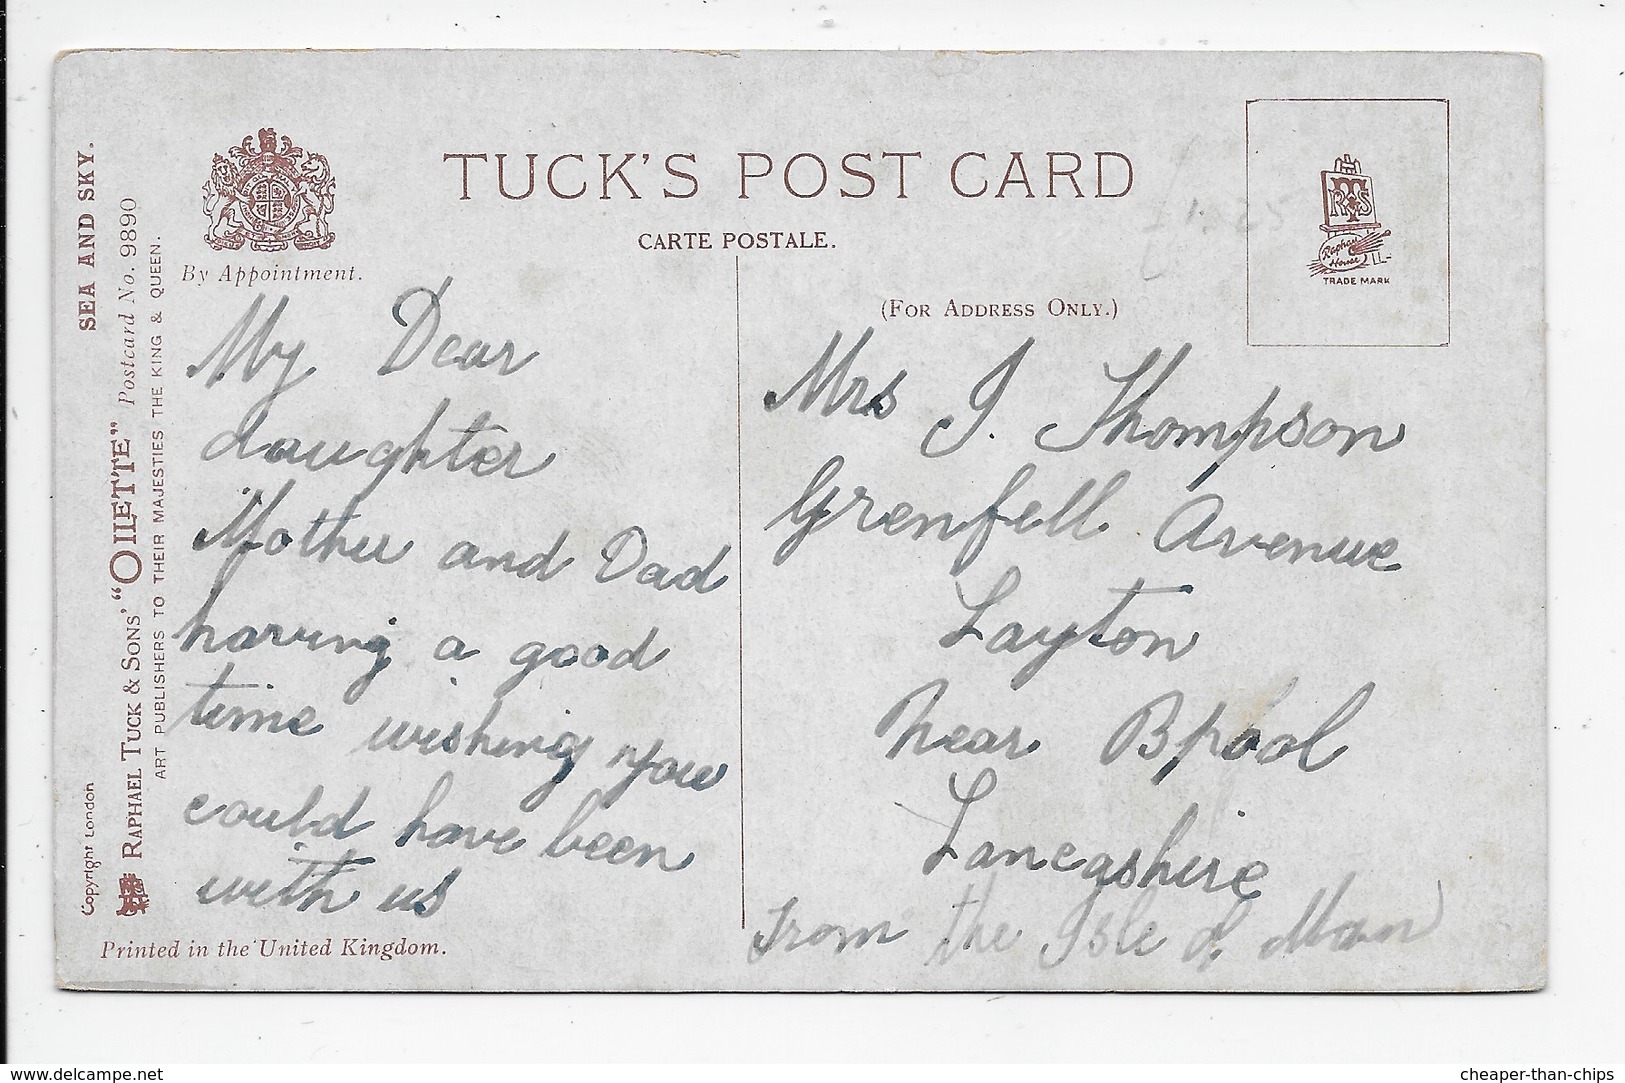 TUCK'S POST CARD
CARTE POSTALE.
(FOR ADDRESS ONLY.)
By Appointment.
SEA AND SKY.
RAPHAEL TUCK & SONS' "OILETTE" Postcard No. 9890
ART PUBLISHERS TO THEIR MAJESTIES THE KING & QUEEN.
Copyright London
Printed in the United Kingdom.
RTS
Raphael
House
LL-
TRADE MARK
My Dear
daughter
Mother and Dad
having a good
time wishing you
could have been
with us
Mrs J. Thompson
Grenfell Avenue
Layton
Near Bpool
Lancashire
From the Isle of Man
www.delcampe.net
cheaper-than-chips